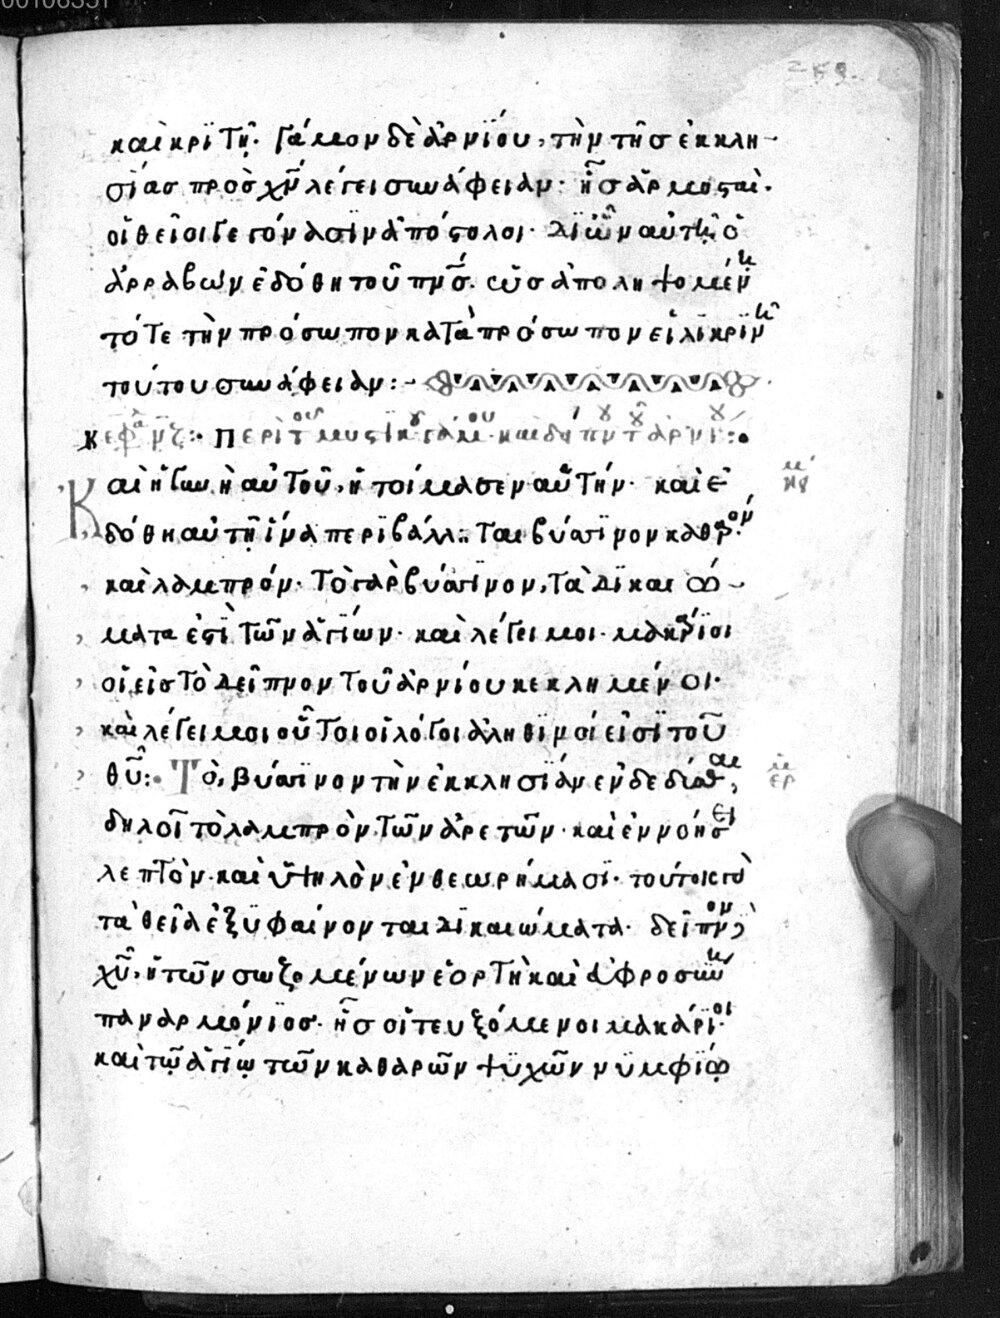 καὶ κριτῇ. γάμον δὲ ἀρνίου, τὴν τῆς ἐκκλη-
σίας πρὸς χν λέγει συνάφειαν· ἧς ἁρμοσταὶ.
οἱ θεῖοι γεγόνασιν ἀπόστολοι· δι ὧν αὐτῇ ὁ
ἀρραβὼν ἐδόθη τοῦ πνσ. ὡς ἀποληψομένη
τότε τὴν πρόσωπον κατὰ πρόσωπον εἰλικρινῆ
τούτου συνάφειαν:-
κεφα μζ:· Περὶ τ μυστικοῦ γάμου· καὶ δείπνου τοῦ ἀρνίου:·
Καὶ ἡ γυνὴ αὐτοῦ, ἡτοίμασεν αὑτήν· καὶ ἐ
δόθη αὐτῇ ἵνα περιβάλληται βύσσινον καθαρὸν
καὶ λαμπρόν· Τὸ γὰρ βύσσινον, τὰ δικαιώ-
ματα ἐστὶ τῶν ἁγίων· καὶ λέγει μοι· μακάριοι
οἱ εἰς τὸ δεῖπνον τοῦ ἀρνίου κεκλημένοι·
καὶ λέγει μοι οὗτοι οἱ λόγοι ἀληθινοί εἰσι τοῦ
θυ:· Τὸ, βύσσινον τὴν ἐκκλησίαν ἐνδεδύσθαι,
δηλοῖ τὸ λαμπρὸν τῶν ἀρετῶν· καὶ ἐν νοήσει
λεπτὸν· καὶ ὑψηλὸν ἐν θεωρήμασι· τούτοις γὰ
τὰ θεῖα ἐξυφαίνονται δικαιώματα· δεῖπνον δὲ
χυ, ἡ τῶν σωζομένων ἑορτὴ καὶ εὐφροσύνη
παναρμόνιος· ἧς οἱ τευξόμενοι μακάριοι·
καὶ τῷ ἁγίῳ τῶν καθαρῶν ψυχῶν νυμφίῳ